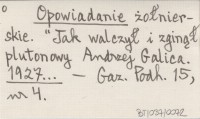 Opowiadanie żołnier-
skie. "Jak walczył i zginął
plutonowy Andrzej Galica.
1927... — Gaz. Podh. 15,
nr 4.